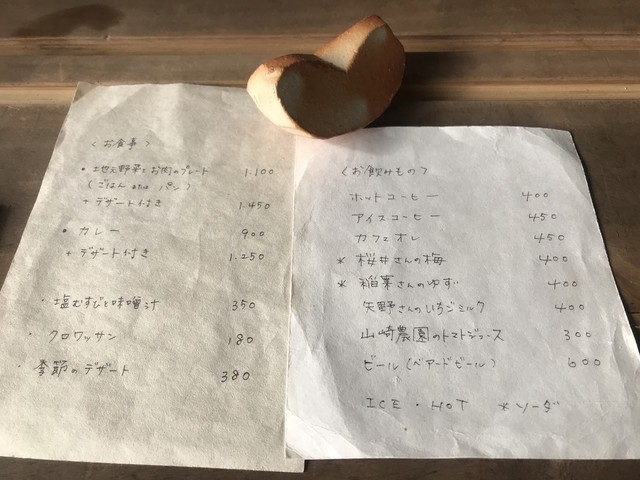 〈お食事〉
・地元野菜とお肉のプレート 1.100
(ごはん or パン)
+デザート付き 1.450
・カレー 900
+デザート付き 1.250
・塩むすびと味噌汁 350
・クロワッサン 180
・季節のデザート 380
〈お飲みもの〉
ホットコーヒー 400
アイスコーヒー 450
カフェオレ 450
* 桜井さんの梅 400
* 稲葉さんのゆず 400
矢野さんのいちごミルク 400
山崎農園のトマトジュース 300
ビール(ベアードビール) 600
ICE・HOT *ソーダ